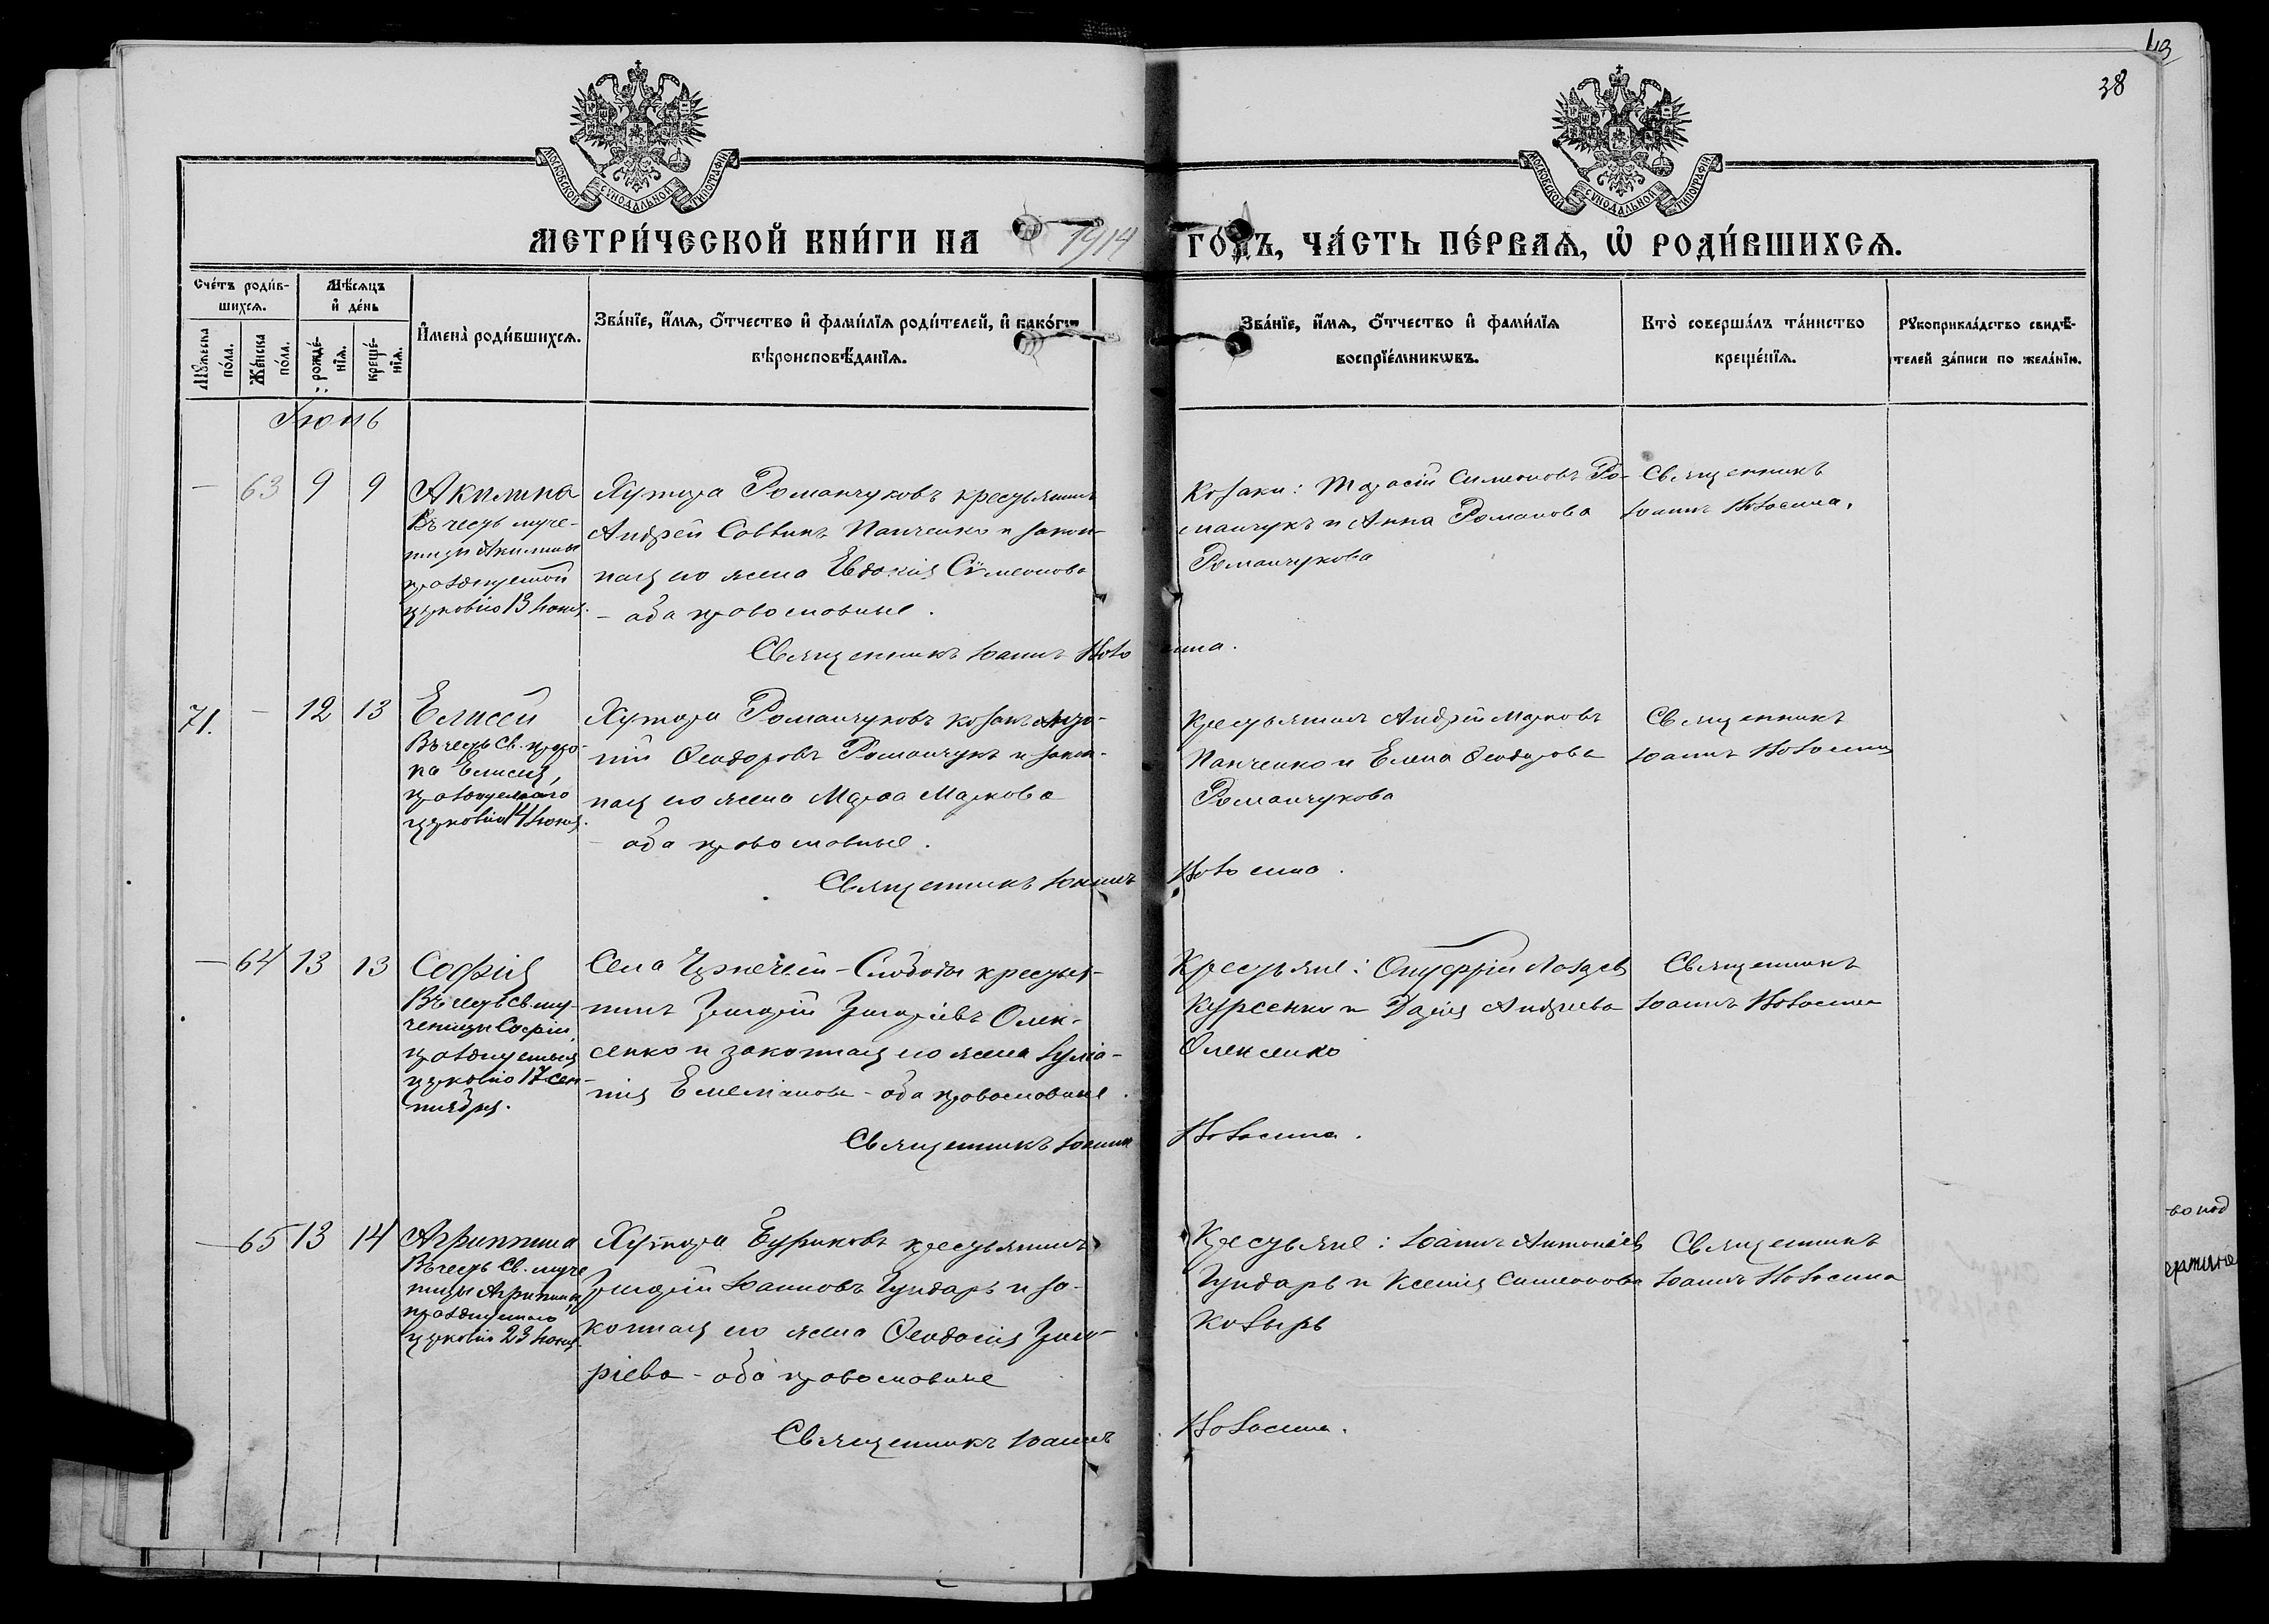 43
38
МОСКОВСКОЙ СѴНОДАЛЬНОЙ ТИПОГРАФІИ
МОСКОВСКОЙ СѴНОДАЛЬНОЙ ТИПОГРАФІИ
МЕТРИ́ЧЕСКОЙ КНИ́ГИ НА 1914 ГО́ДЪ, ЧА́СТЬ ПЕ́РВАѦ, Ѡ҆ РОДИ́ВШИХСѦ.
Сче́тъ роди́в-
шихсѧ.
Мꙋ́жеска
по́ла.
Же́нска
по́ла.
Мѣ́сѧцъ
и҆ де́нь
рожде́-
нїѧ.
креще́-
нїѧ.
И҆мена̀ роди́вшихсѧ.
Зва́нїе, и҆́мѧ, ѻ҆́тчество и҆ фами́лїѧ роди́телей, и҆ како́гѡ
вѣроисповѣ́данїѧ.
Зва́нїе, и҆́мѧ, ѻ҆́тчество и҆ фами́лїѧ
воспрїе́мникѡвъ.
Кто̀ соверша́лъ та́инство
креще́нїѧ.
Рꙋкоприкла́дство свидѣ́-
телей за́писи по жела́нїю.
Іюнь
— 63 9 9
Акилина
Въ честь муче-
ницы Акилины
празднуемой
церковію 13 Іюня.
Хутора Романчуковъ крестьянинъ
Андрей Саввинъ Панченко и закон-
ная его жена Евдокія Сімеонова
- оба православные.
Священникъ Іоаннъ
Козаки: Тарасій Симеоновъ Ро-
манчукъ и Анна Романова
Романчукова
Священникъ
Іоаннъ
71. — 12 13
Елисей
Въ честь св. проро-
ка Елисея,
празднуемаго
церковію 14 Іюня.
Хутора Романчуковъ козакъ
Ѳеодоровъ Романчукъ и закон-
ная его жена Марѳа Маркова
- оба православные.
Священникъ Іоаннъ
Крестьянинъ Андрей Марковъ
Панченко и Елена Ѳеодорова
Романчукова
Священникъ
Іоаннъ
— 64 13 13
Софія
Въ честь св. му-
ченицы Софіи,
празднуемыя
церковію 17 сен-
тября.
Села Чернечьей-Слободы крестья-
нинъ Григорій Григоріевъ Олек-
сенко и законная его жена Іуліа-
нія Емеліанова - оба православные.
Священникъ Іоаннъ
Крестьяне: Онуфрій
Курсенко и Дарія Андреева
Олексенко
Священникъ
Іоаннъ
— 65 13 14
Агриппина
Въ честь Св. муче
ницы Агрипины,
празднуемаго
церковію 23 Іюня.
Хутора Буриковъ крестьянинъ
Григорій Іоанновъ Гундарь и за-
конная его жена Ѳеодосія Григо-
ріева - оба православные
Священникъ Іоаннъ
Крестьяне: Іоаннъ Антоніевъ
Гундарь и Ксенія Симеонова
Козырь
Священникъ
Іоаннъ